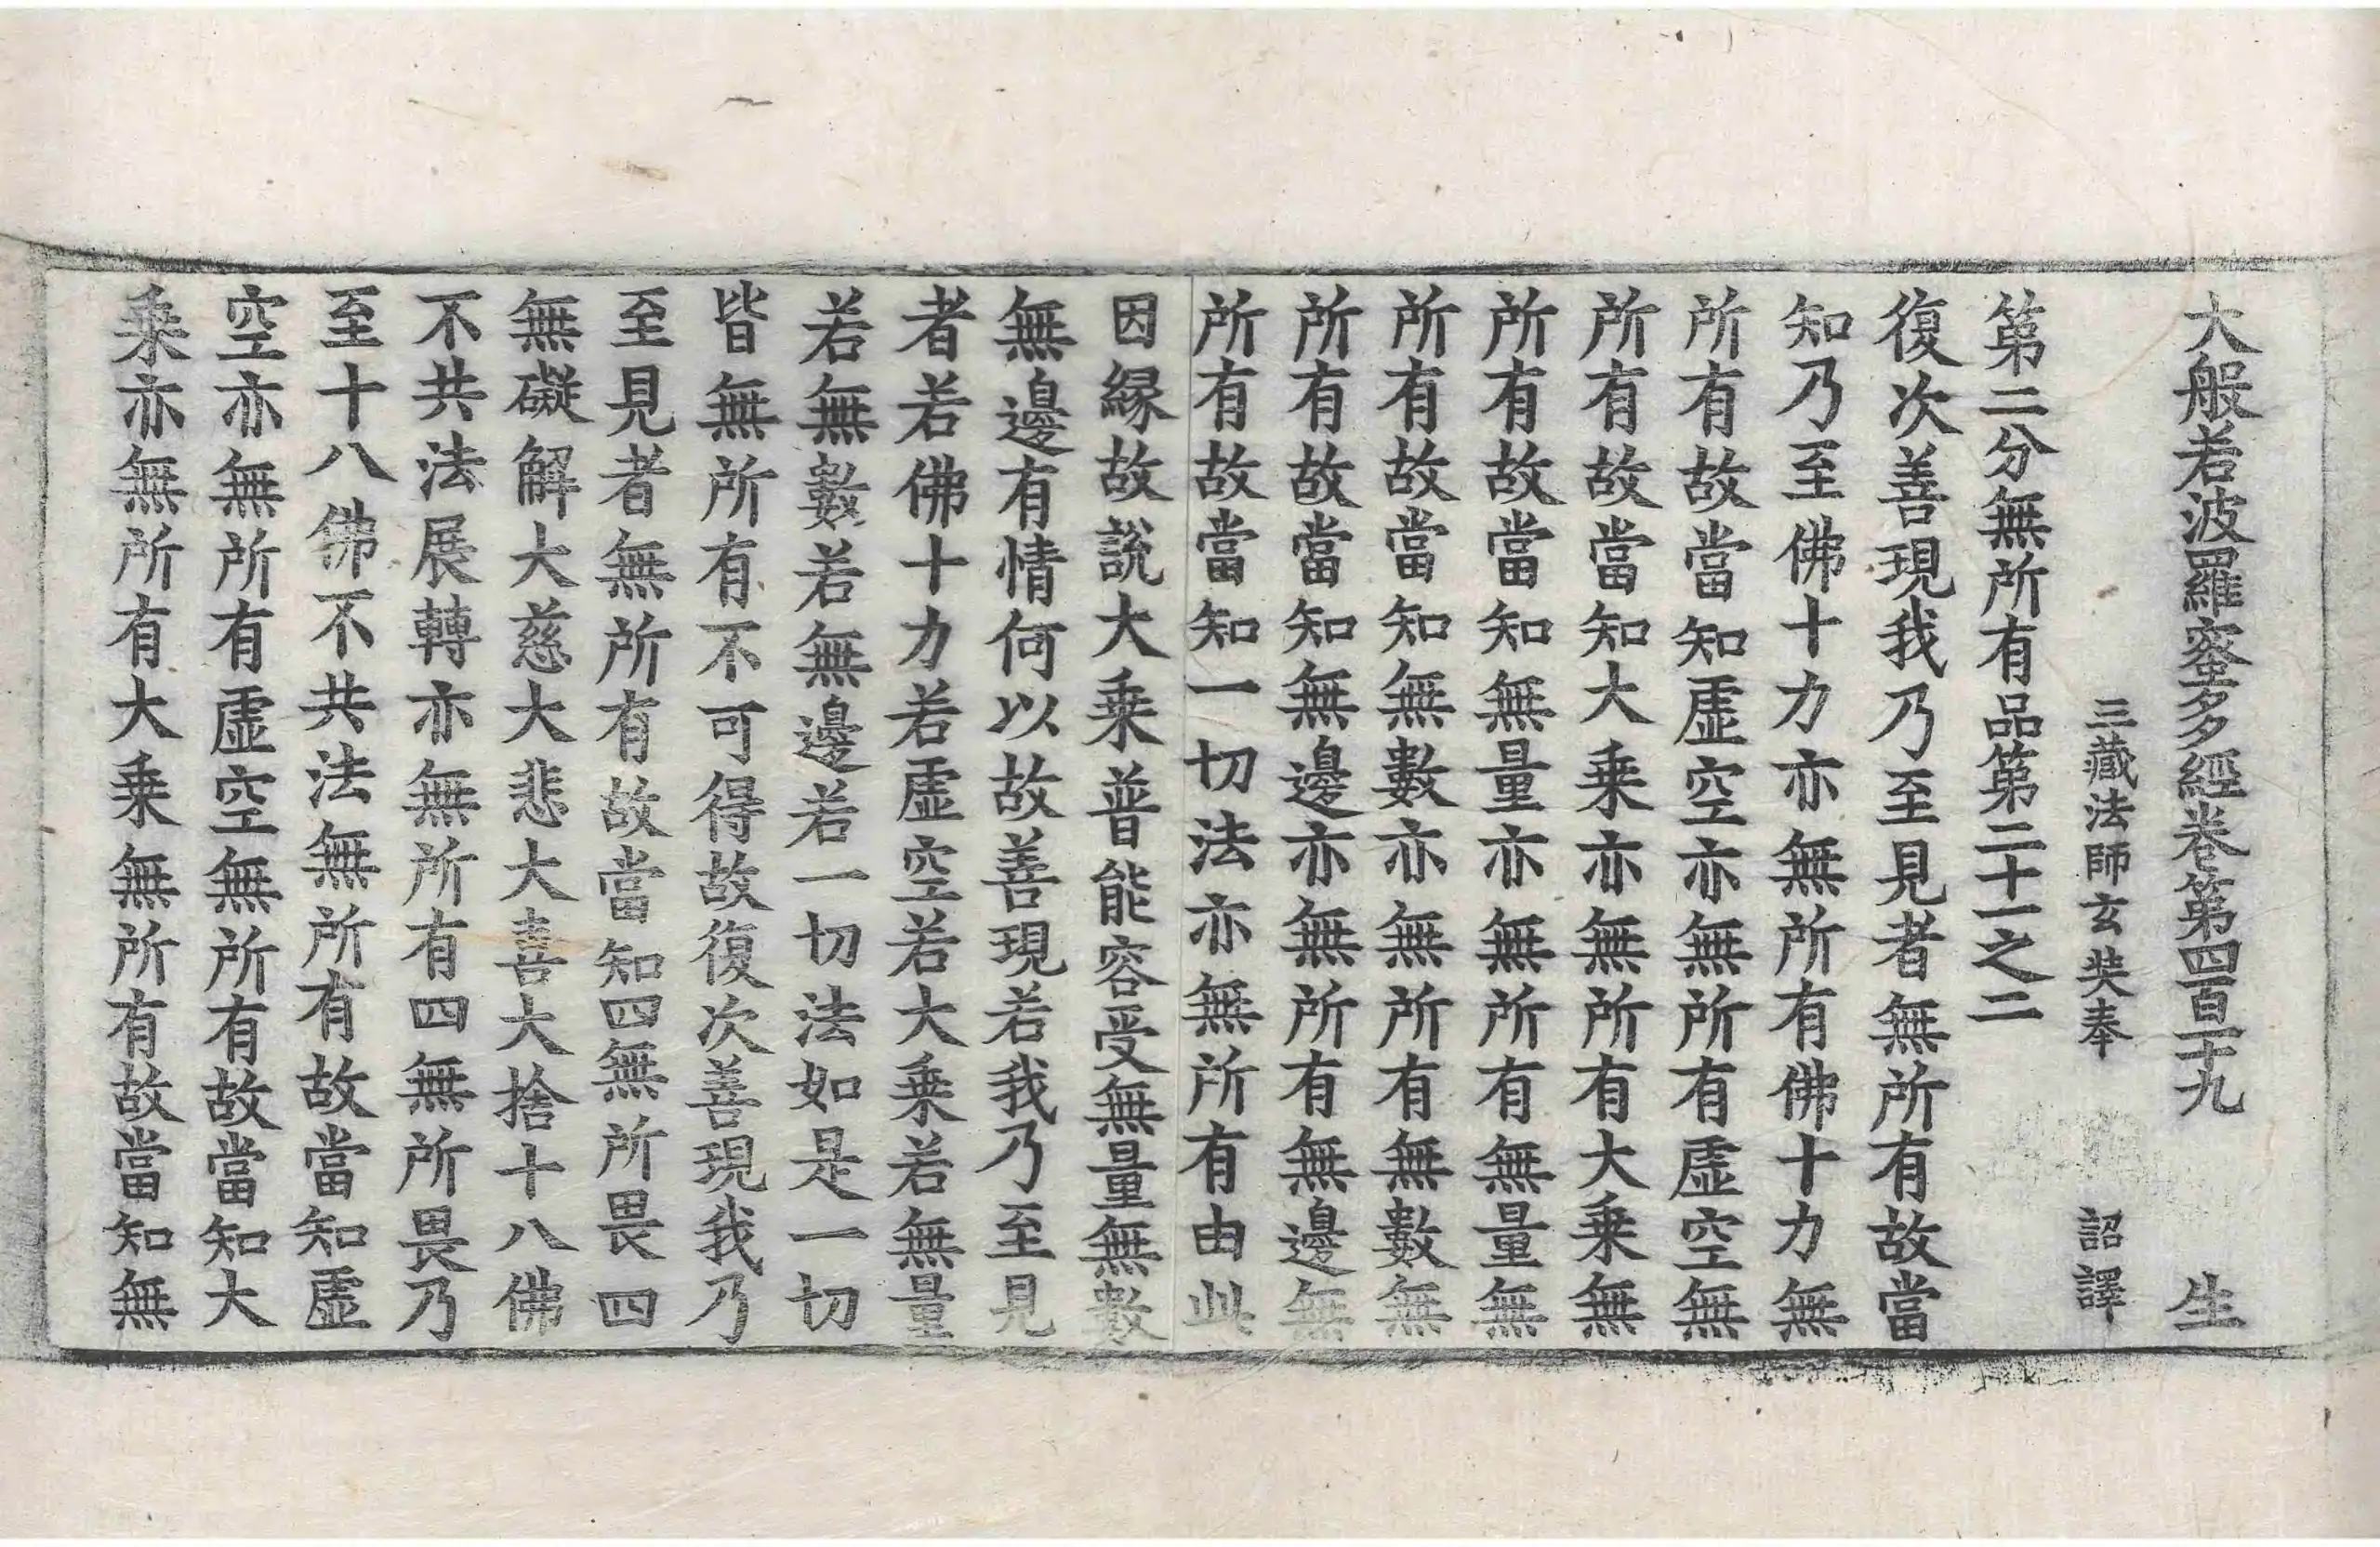 大般若波羅蜜多經卷第四百二十九 生
三藏法師玄奘奉 詔譯
第二分無所有品第二十一之二
復次善現我乃至見者無所有故當
知乃至佛十力亦無所有佛十力無
所有故當知虛空亦無所有虛空無
所有故當知大乘亦無所有大乘無
所有故當知無量亦無所有無量無
所有故當知無數亦無所有無數無
所有故當知無邊亦無所有無邊無
所有故當知一切法亦無所有由此
因緣故說大乘普能容受無量無數
無邊有情何以故善現若我乃至見
者若佛十力若虛空若大乘若無量
若無數若無邊若一切法如是一切
皆無所有不可得故復次善現我乃
至見者無所有故當知四無所畏四
無礙解大慈大悲大喜大捨十八佛
不共法展轉亦無所有四無所畏乃
至十八佛不共法無所有故當知虛
空亦無所有虛空無所有故當知大
乘亦無所有大乘無所有故當知無